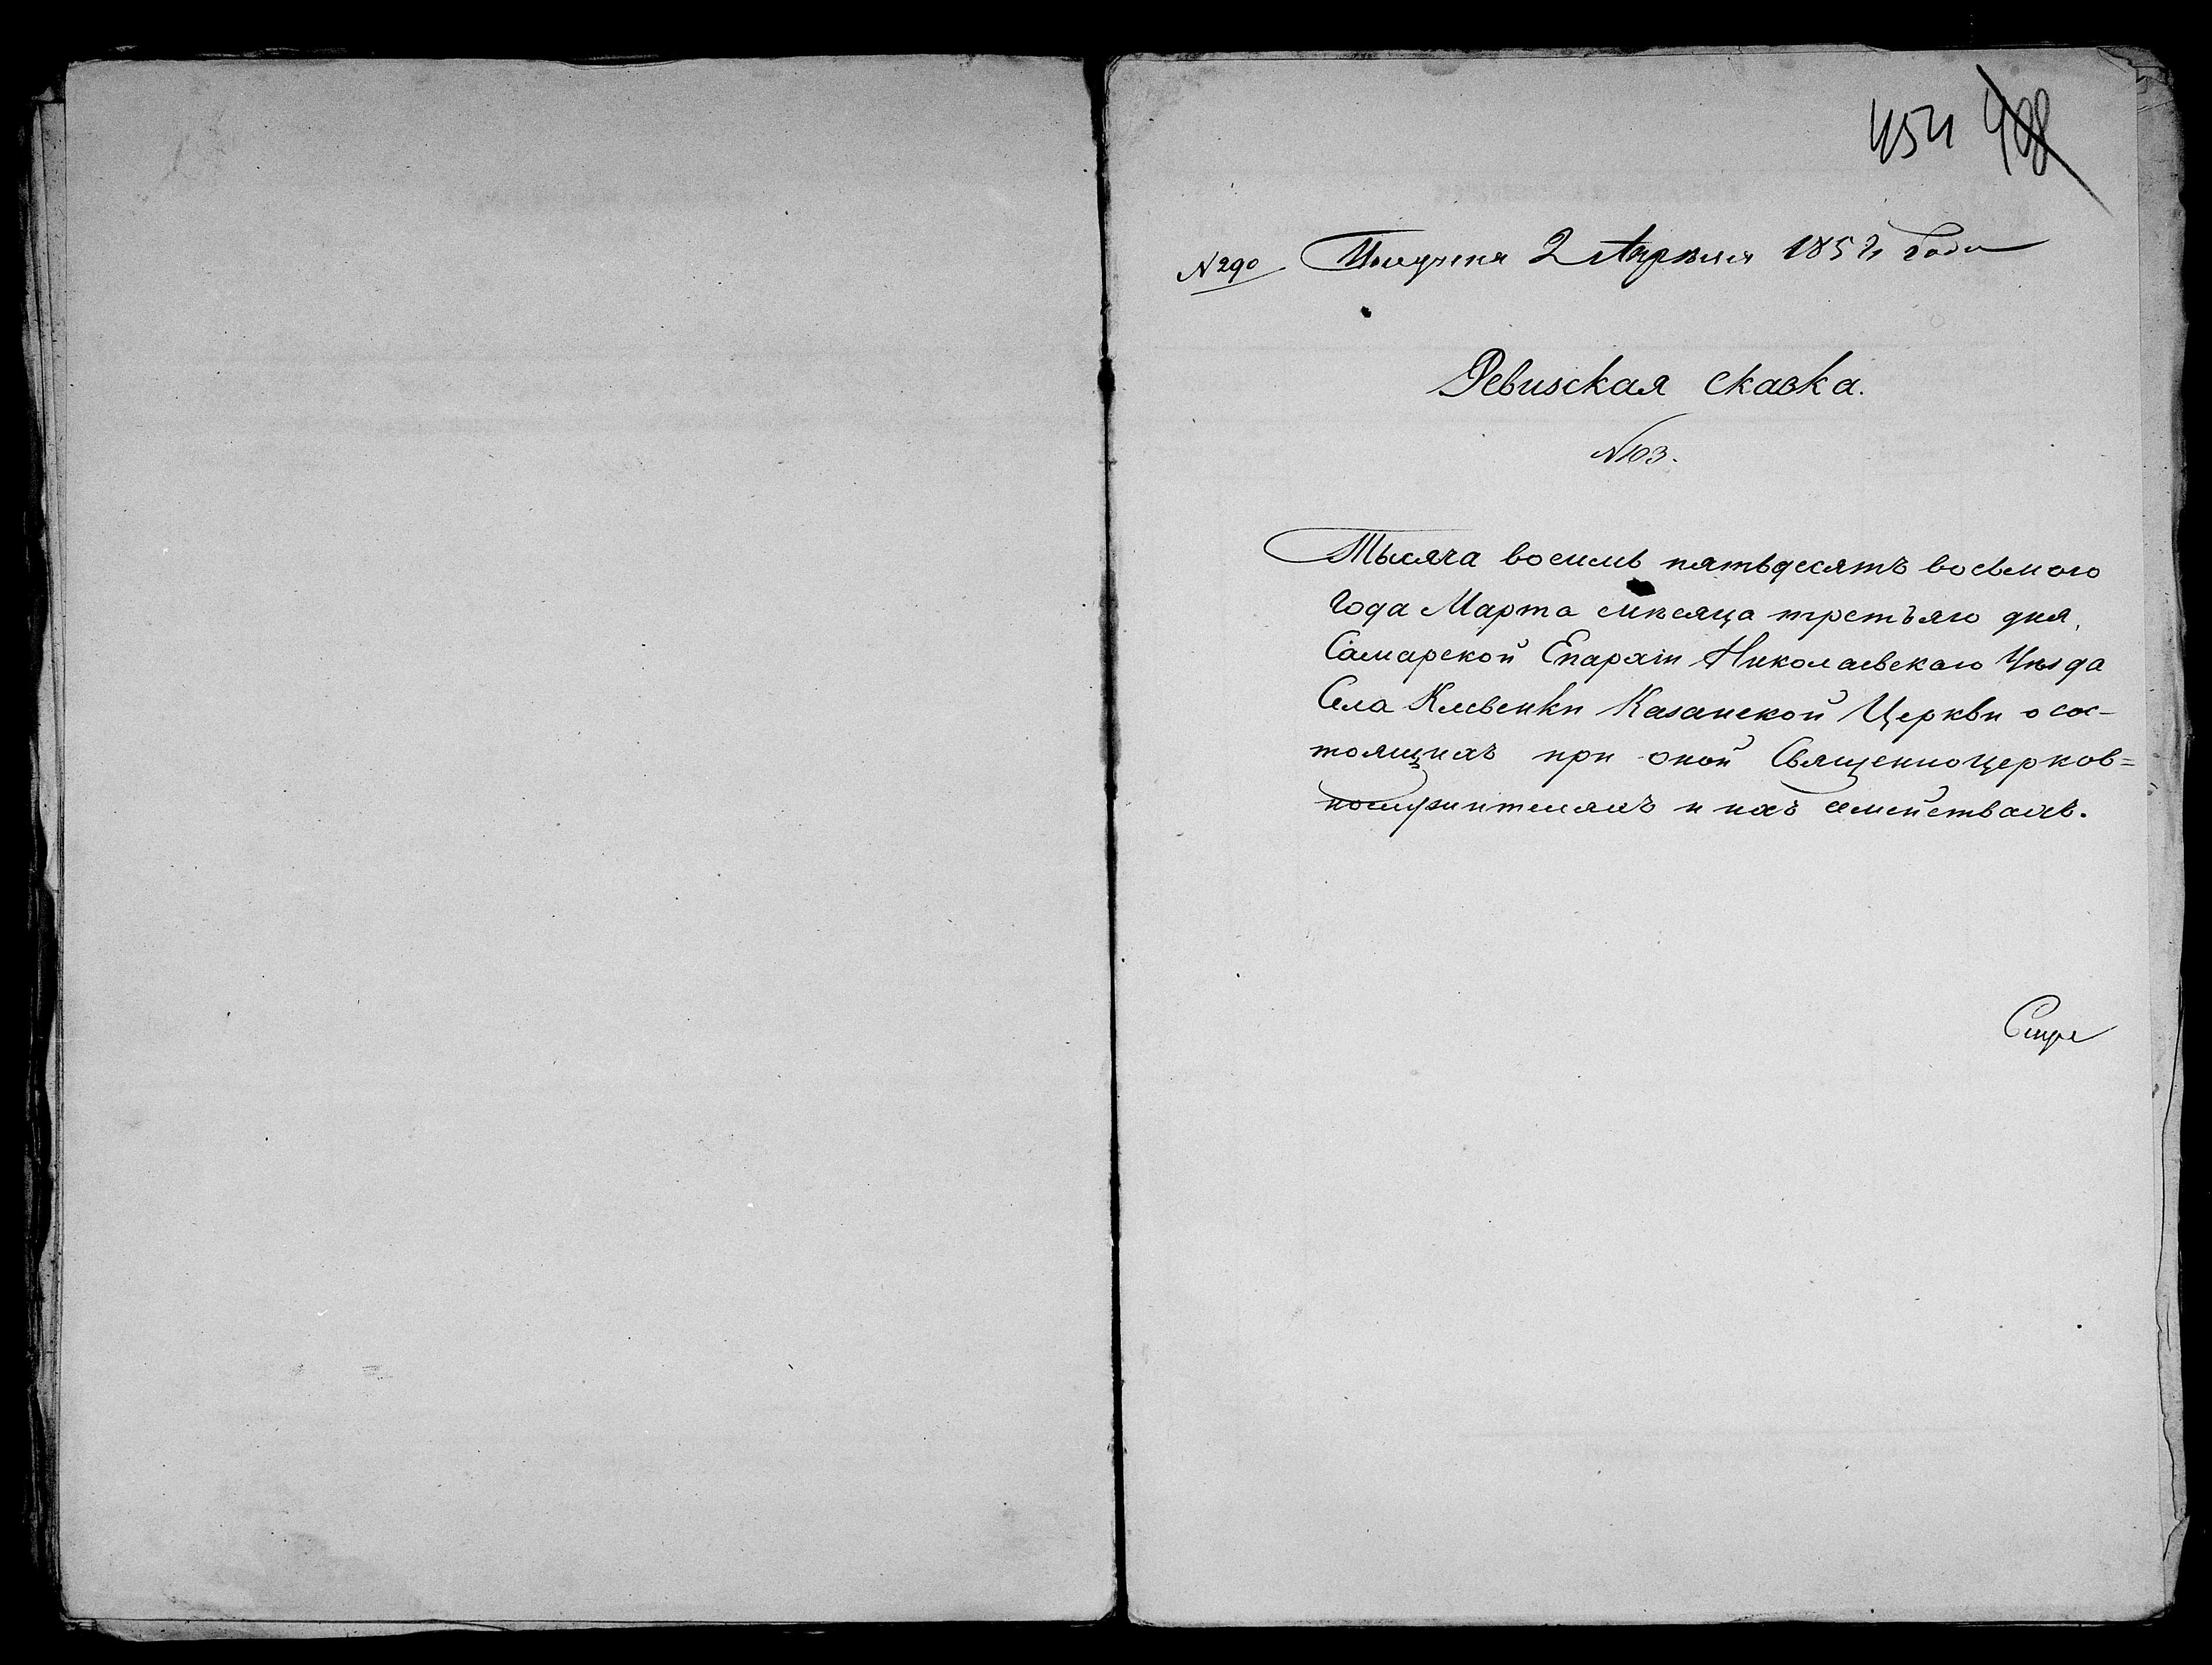 454 408
N 290 Получена 2 Апреля 1858 года
Ревизская сказка.
N 103.
Тысяча восемь пятьдесятъ восьмого
Года Марта мѣсяца третьяго дня,
Самарской Епархіи Николаевскаго Уѣзда
Села Клевенки Казанской Церкви о сос-
тоящихъ при оной Священноцерков=
нослужителяхъ и ихъ семействахъ.